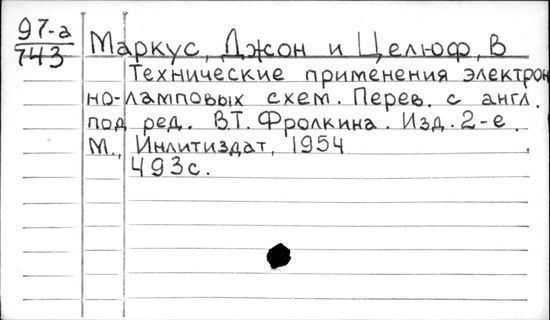 97-а
743
Маркус, Джон и Целюф, В
Технические применения электрон
но-ламповых схем. Перев. с англ.
под ред. В.Т. Фролкина. Изд. 2-е.
М., Инлитиздат, 1954
493с.